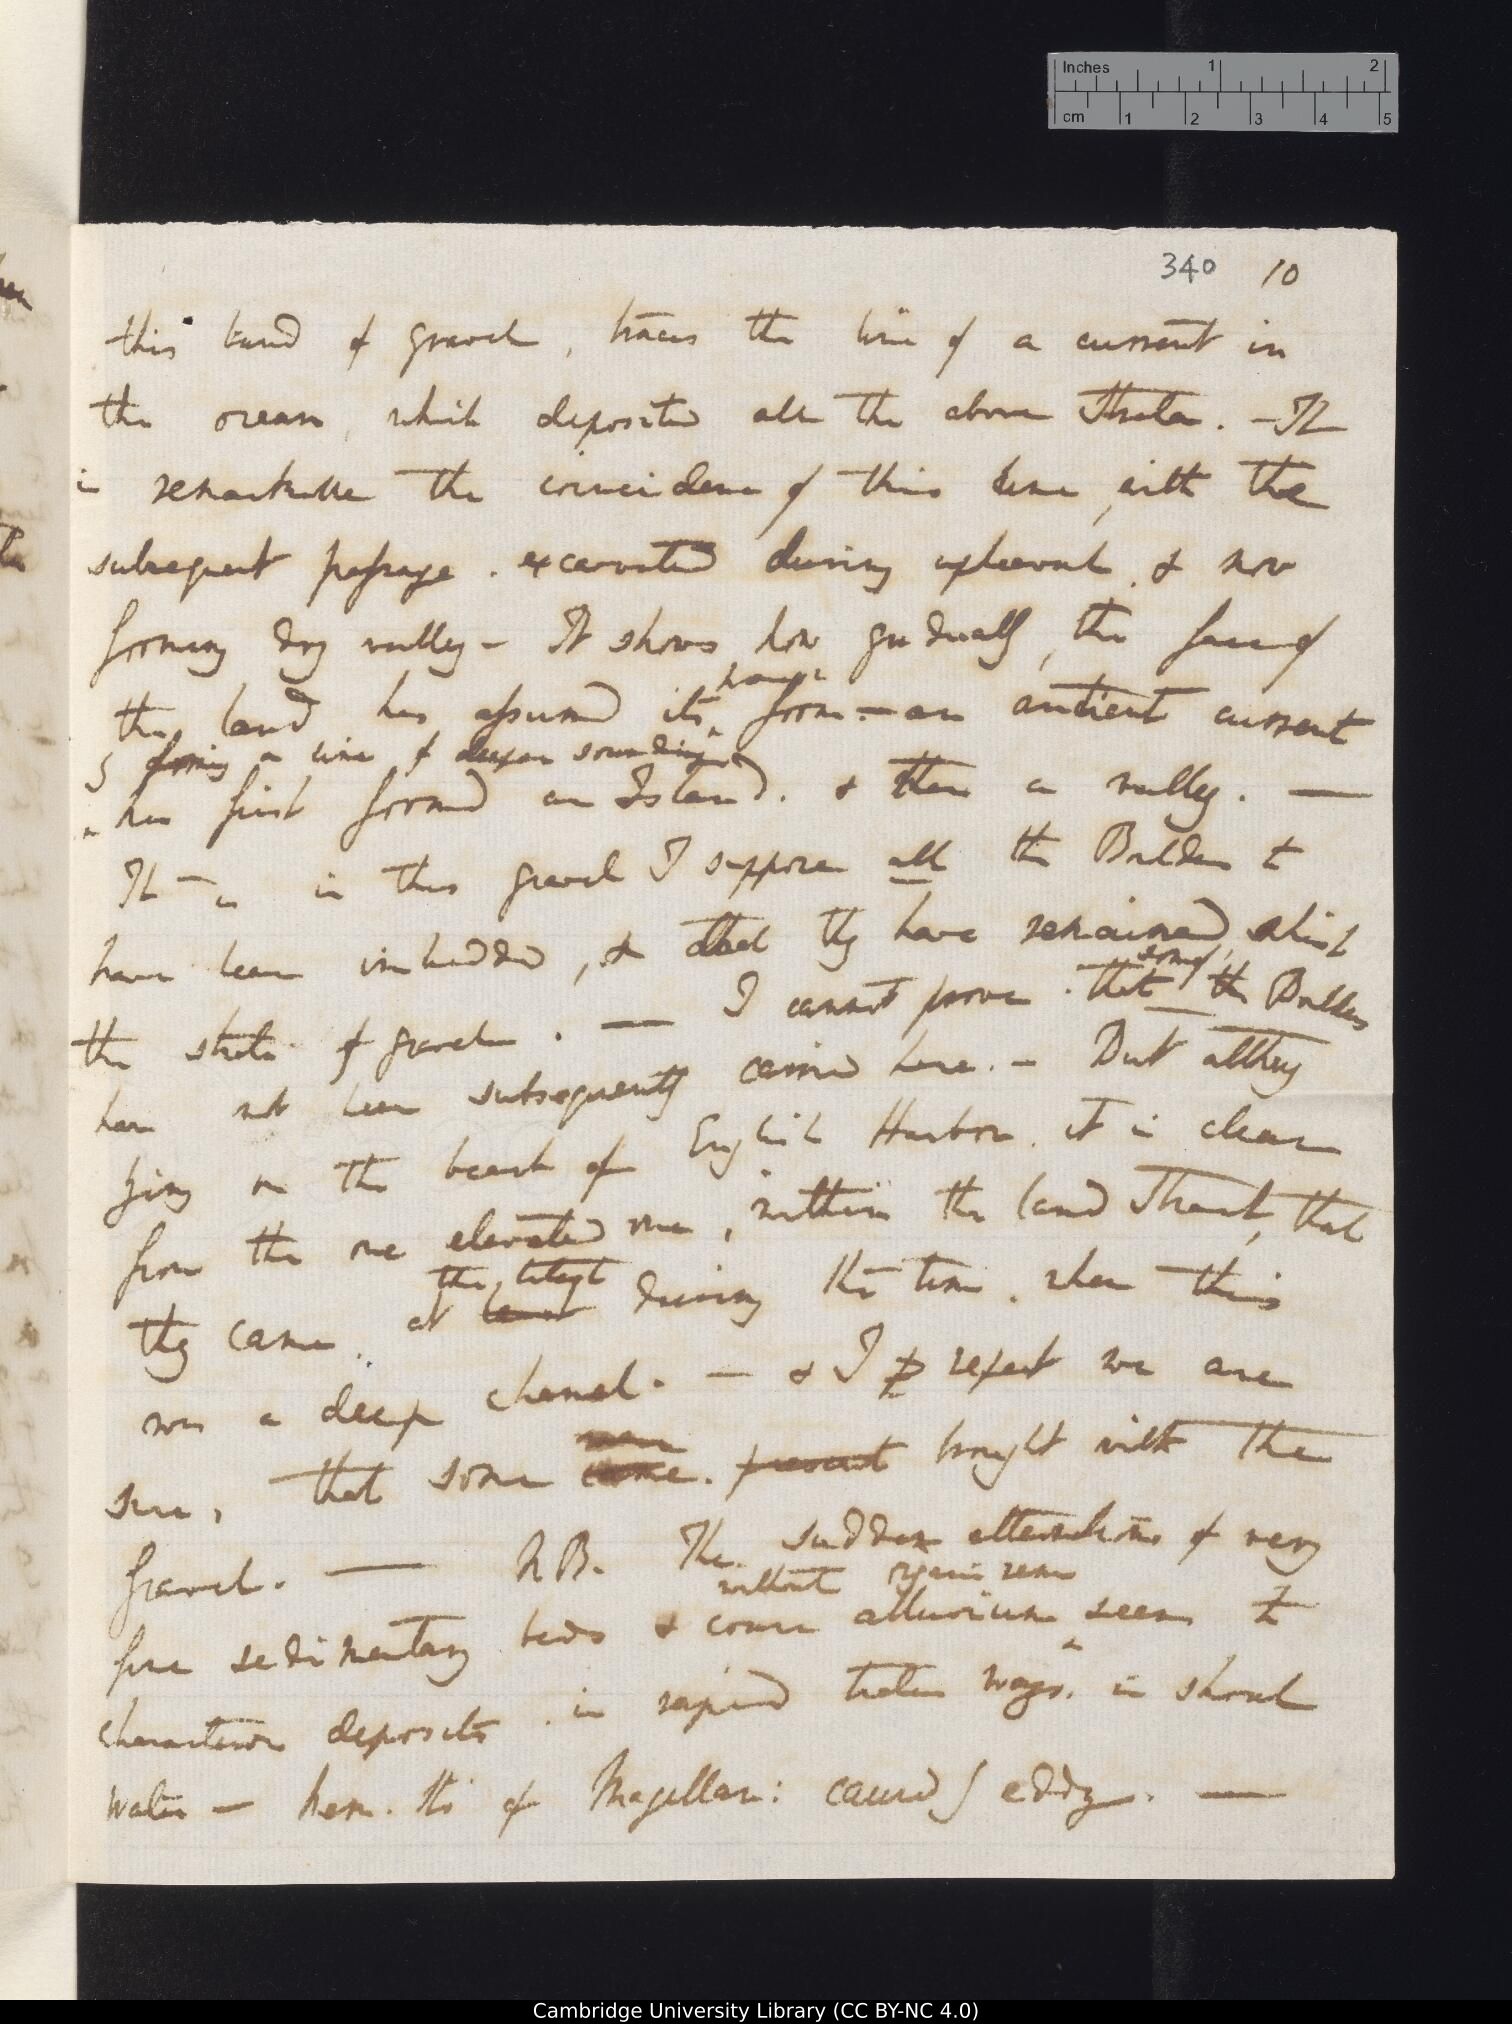 Inches 1 2
cm 1 2 3 4 5
340 10
this band of gravel, traces the line of a current in
the ocean, which deposited all the above Strata. — It
is remarkable the coincidence of this line, with the
subsequent passage. excavated during upheaval, & now
forming dry valley — It shows how gradually, the face of
the land has assumed its present form. — an antient current
forming a line of deeper soundings
has first formed an Island. & then a valley. —
It is in this gravel I suppose all the Boulders to
have been imbedded, & that they have remained, whilst
the strata of gravel. — I cannot prove. that some of the Boulders
have not been subsequently carried here. — But altho'
lying on the beach of English Harbor. it is clear
from the one elevated one, within the land Strait, that
they came. at the latest during the time. when this
was a deep channel. — & I repeat we are
sure, that some came. present brought with the
gravel. — NB. The sudden alternations of very
without organic rem
fine sedimentary beds & coarse alluvium seems to
characterise deposits. in rapid tides ways. in shoal
water — hence. Sts of Magellan: caused by eddy. —
Cambridge University Library (CC BY-NC 4.0)